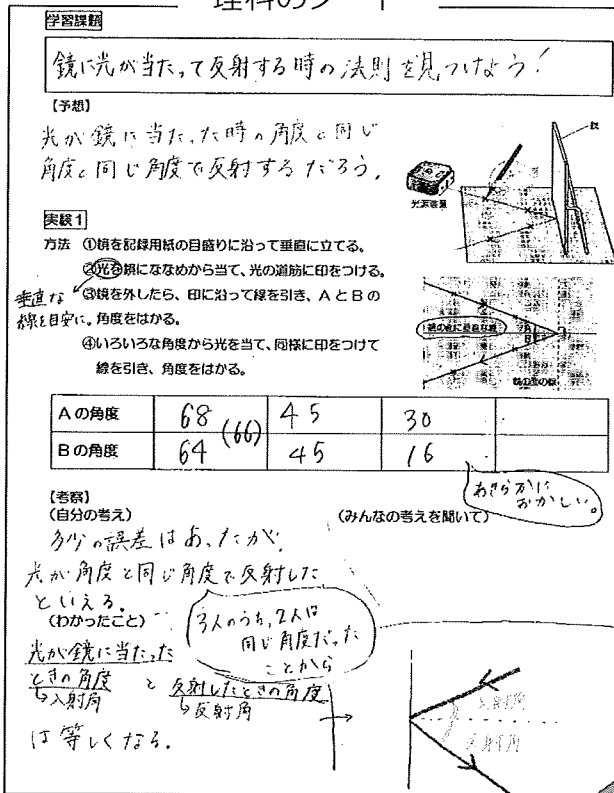 理科のシート
学習課題
鏡に光が当たって反射する時の法則を見つけよう!
【予想】
光が鏡に当たった時の角度と同じ
角度と同じ角度で反射するだろう。
鏡
光源装置
実験1
方法 ①鏡を記録用紙の目盛りに沿って垂直に立てる。
②光を鏡にななめから当て、光の道筋に印をつける。
垂直な
線を目安に。
③鏡を外したら、印に沿って線を引き、AとBの
角度をはかる。
④いろいろな角度から光を当て、同様に印をつけて
線を引き、角度をはかる。
鏡の面に垂直な線
A
B
Aの角度 68 45 30
(66)
Bの角度 64 45 16
あきらかに
おかしい。
【考察】
(自分の考え) (みんなの考えを聞いて)
多少の誤差はあったが、
光が角度と同じ角度で反射した
といえる。
3人のうち、2人は
同じ角度だった
ことから
(わかったこと)
光が鏡に当たった
ときの角度 と 反射したときの角度
↳入射角 ↳反射角
は等しくなる。
→
入射角
反射角